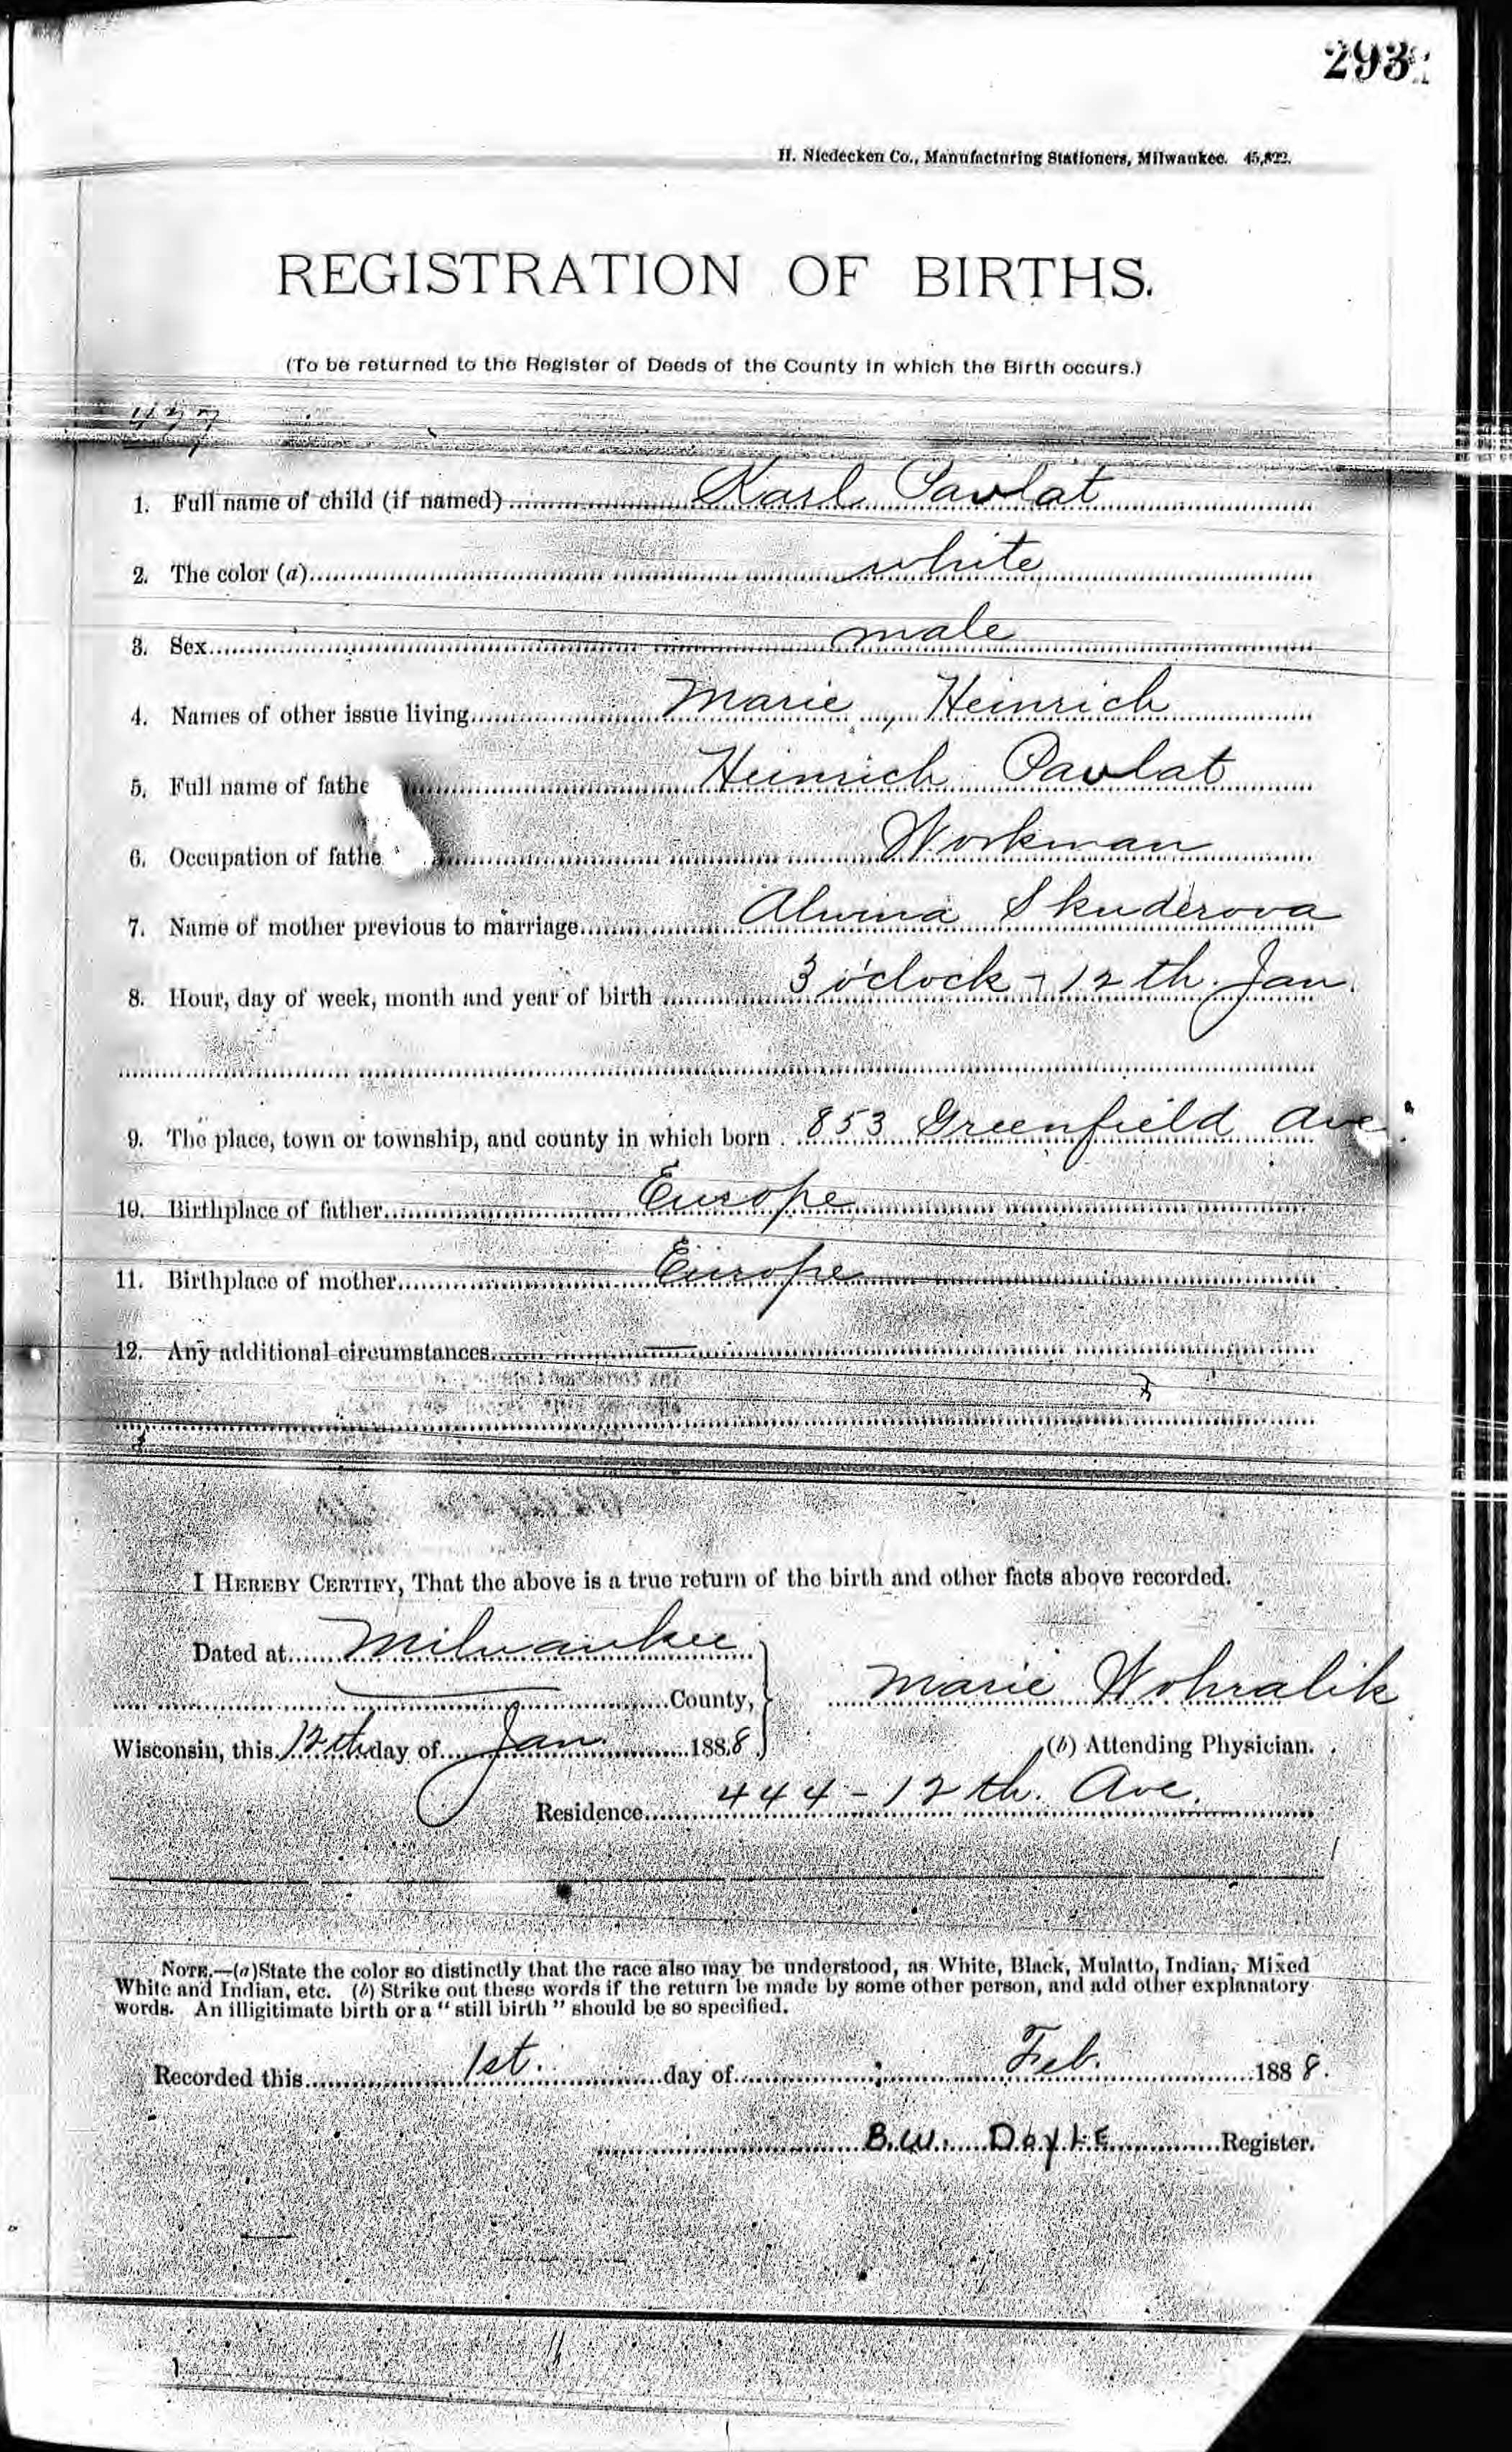 293
H. Niedecken Co., Manufacturing Stationers, Milwaukee. 45,822.
REGISTRATION OF BIRTHS.
(To be returned to the Register of Deeds of the County in which the Birth occurs.)
1. Full name of child (if named) Karl Pavlat
2. The color (a) white
3. Sex male
4. Names of other issue living Marie, Heinrich
5. Full name of fathe Heinrich Pavlat
6. Occupation of fathe Workman
7. Name of mother previous to marriage Alwina Skuderova
8. Hour, day of week, month and year of birth 3 o'clock - 12th. Jan.
9. The place, town or township, and county in which born 853 Greenfield Ave.
10. Birthplace of father Europe
11. Birthplace of mother Europe
12. Any additional circumstances —
I HEREBY CERTIFY, That the above is a true return of the birth and other facts above recorded.
Dated at Milwaukee
County,
Marie Wohralik
Wisconsin, this 12th day of Jan. 1888
(b) Attending Physician.
Residence 444 - 12th. Ave.
NOTE.—(a) State the color so distinctly that the race also may be understood, as White, Black, Mulatto, Indian, Mixed
White and Indian, etc. (b) Strike out these words if the return be made by some other person, and add other explanatory
words. An illigitimate birth or a "still birth" should be so specified.
Recorded this 1st. day of Feb. 1888.
B.W. DoyLE Register.